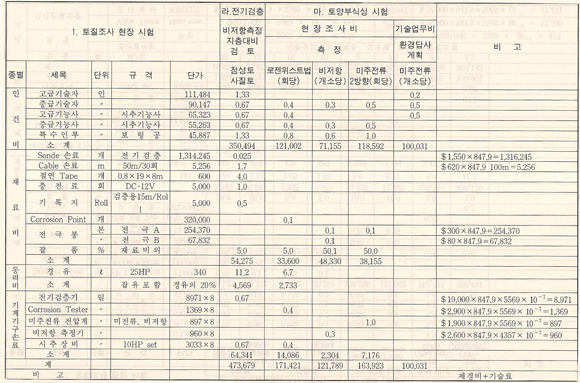 1. 토질조사 현장 시험
라.전기검층
마. 토양부식성 시험
비저항측정 지층대비 검 토
현 장 조 사 비
기술업무비
비 고
측 정
환경답사 계획
종별 세목 단위 규 격 단가 점성토 사질토 로젠위스트법 (회당) 비저항 (개소당) 미주전류 2방향(회당) 미주전류 (개소당)
인 건 비
고급기술자 인 111,484 1,33 0.2
중급기술자 〃 90,147 0,67 0.4 0,3 0,5 0,5
고급기능사 〃 시추기능사 65,323 0,67 0.4 0,5
중급기능사 〃 시추기능사 55,263 0,67 0.4 0,3 0,5
특수인부 〃 보 링 공 45,887 1,33 0.8 0,6 1.0
소 계 350,494 121,002 71,155 118,592 100,031
재 료 비
Sonde 손료 개 전 기 검 층 1,314,245 0,025 $1,550×847.9=1,316,245
Cable 손료 m 50m/30회 5,256 1,7 $620×847.9 100m=5,256
절연 Tape 개 0.8×19×8m 600 4.0
충 전 료 회 DC-12V 5,000 1.0
기 록 지 Roll 검층용15m/Roll 5,000 0,5
Corrosion Point 개 320,000 0.1
전 극 봉 본 전 극 A 254,370 0,1 0,1 $300×847.9=254,370
〃 전 극 B 67,832 0.1 $80×847.9=67,832
잡 품 % 재 료 비 의 5,0 5,0 50,1 50,0
소 계 54,275 33,600 48,330 38,155
동력비
경 유 ℓ 25HP 340 11,2 6.7
소 계 잡 유 포 함 경유의 20% 4,569 2,733
기계기구손료
전기검층기 일 8971×8 0,67 $19,000×847.9×5569×10⁻⁷=8,971
Corrosion Tester 〃 1369×8 0.4 $2,900×847.9×5569×10⁻⁷=1,369
미주전류 전압계 〃 미전류, 비저항 897×8 1.0 $1,900×847.9×5569×10⁻⁷=897
비저항 측정기 〃 960×8 0.3 $2,600×847.9×4357×10⁻⁷=960
시 추 장 비 〃 10HP set 3033×8 0,67 0.4
소 계 64,341 14,086 2,304 7,176
계 473,679 171,421 121,789 163,923 100,031
비 고 제경비+기술료